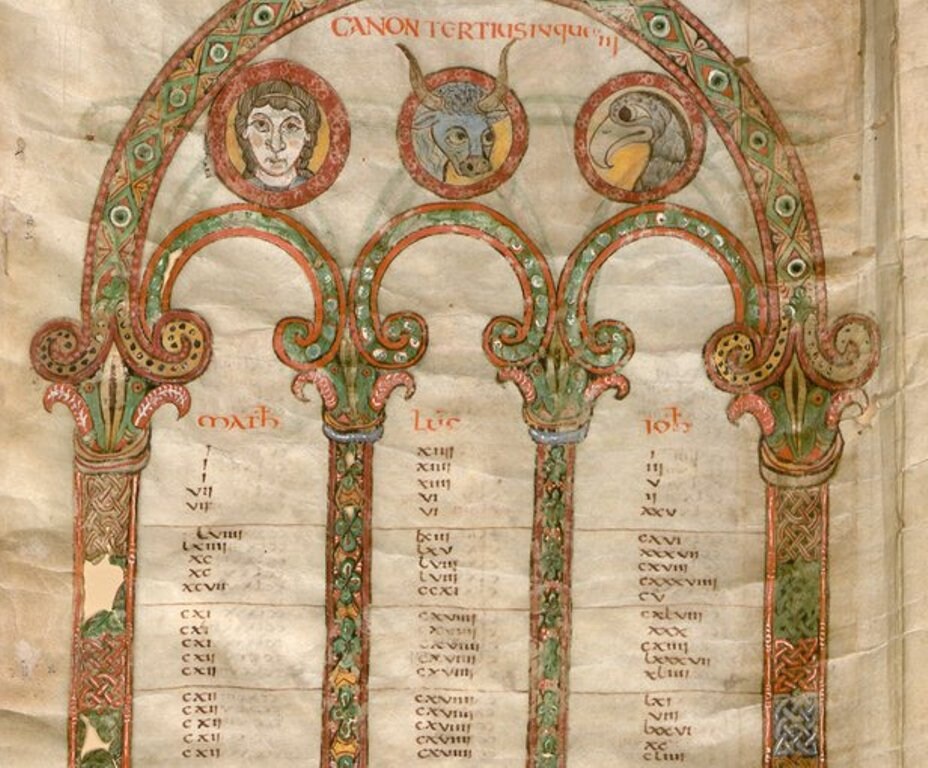 CANON TERTIUS IN QUO III
MATH LUC IOH
I XIIII I
I XIIII III
I XIIII V
VII VI II
VII VI XXV
LVIIII LXIII CXVI
LXIIII LXV XXXVII
XC LVIII CXVIII
XC LVIII CXXXVIIII
XCVII CCXI CV
CXI CXVIIII CXLVIII
CXI XXX
CXI CXIIII
CXII CXVIIII LXXXVII
CXII CXVIIII XLIIII
CXII CXVIIII LXI
CXII CXVIIII VIII
CXII CXVIIII LXXVI
CXII CXVIIII XC
CXII CXVIIII CLIIII